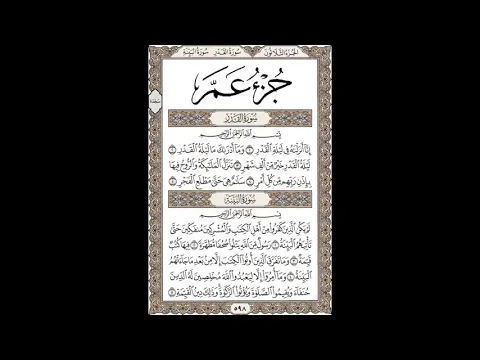 الجزء الثلاثون سورة القدر سورة البينة
جزء عم
سجدة
سورة القدر
بسم الله الرحمن الرحيم
إنا أنزلنه في ليلة القدر ١ وما أدرىك ما ليلة القدر ٢
ليلة القدر خير من ألف شهر ٣ تنزل الملئكة والروح فيها
بإذن ربهم من كل أمر ٤ سلم هي حتى مطلع الفجر ٥
سورة البينة
بسم الله الرحمن الرحيم
لم يكن الذين كفروا من أهل الكتب والمشركين منفكين حتى
تأتيهم البينة ١ رسول من الله يتلوا صحفا مطهرة ٢ فيها كتب
قيمة ٣ وما تفرق الذين أوتوا الكتب إلا من بعد ما جاءتهم
البينة ٤ وما أمروا إلا ليعبدوا الله مخلصين له الدين
حنفاء ويقيموا الصلوة ويؤتوا الزكوة وذلك دين القيمة ٥
٥٩٨